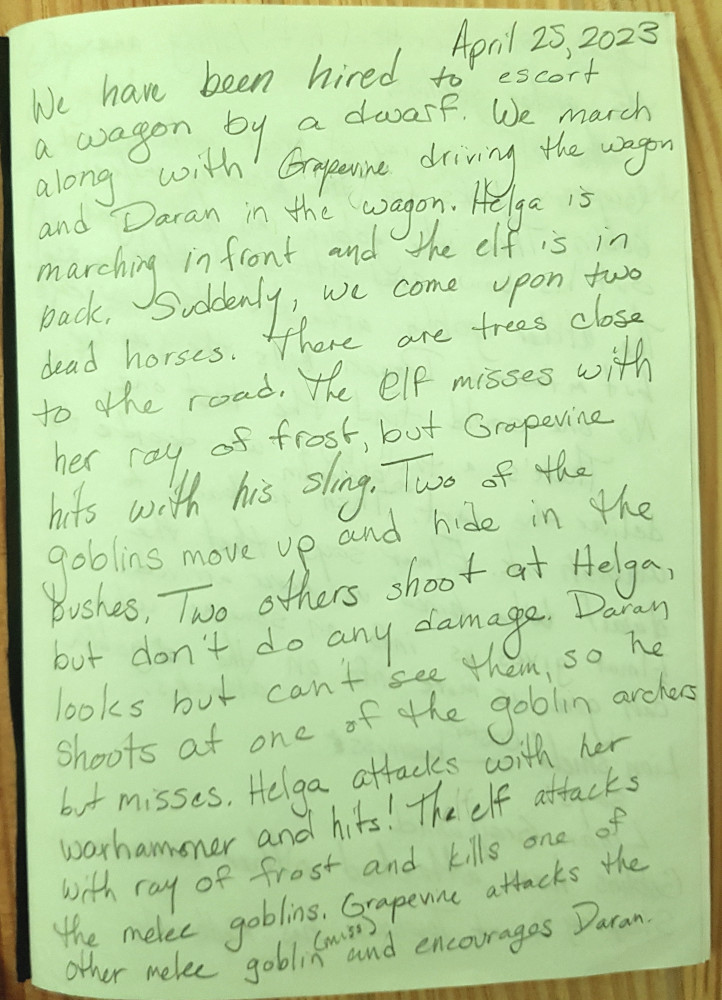 April 25, 2023
We have been hired to escort
a wagon by a dwarf. We march
along with Grapevine driving the wagon
and Daran in the wagon. Helga is
marching in front and the elf is in
back. Suddenly, we come upon two
dead horses. There are trees close
to the road. The elf misses with
her ray of frost, but Grapevine
hits with his sling. Two of the
goblins move up and hide in the
bushes. Two others shoot at Helga,
but don't do any damage. Daran
looks but can't see them, so he
shoots at one of the goblin archers
but misses. Helga attacks with her
warhammer and hits! The elf attacks
with ray of frost and kills one of
the melee goblins. Grapevine attacks the
other melee goblin (miss) and encourages Daran.